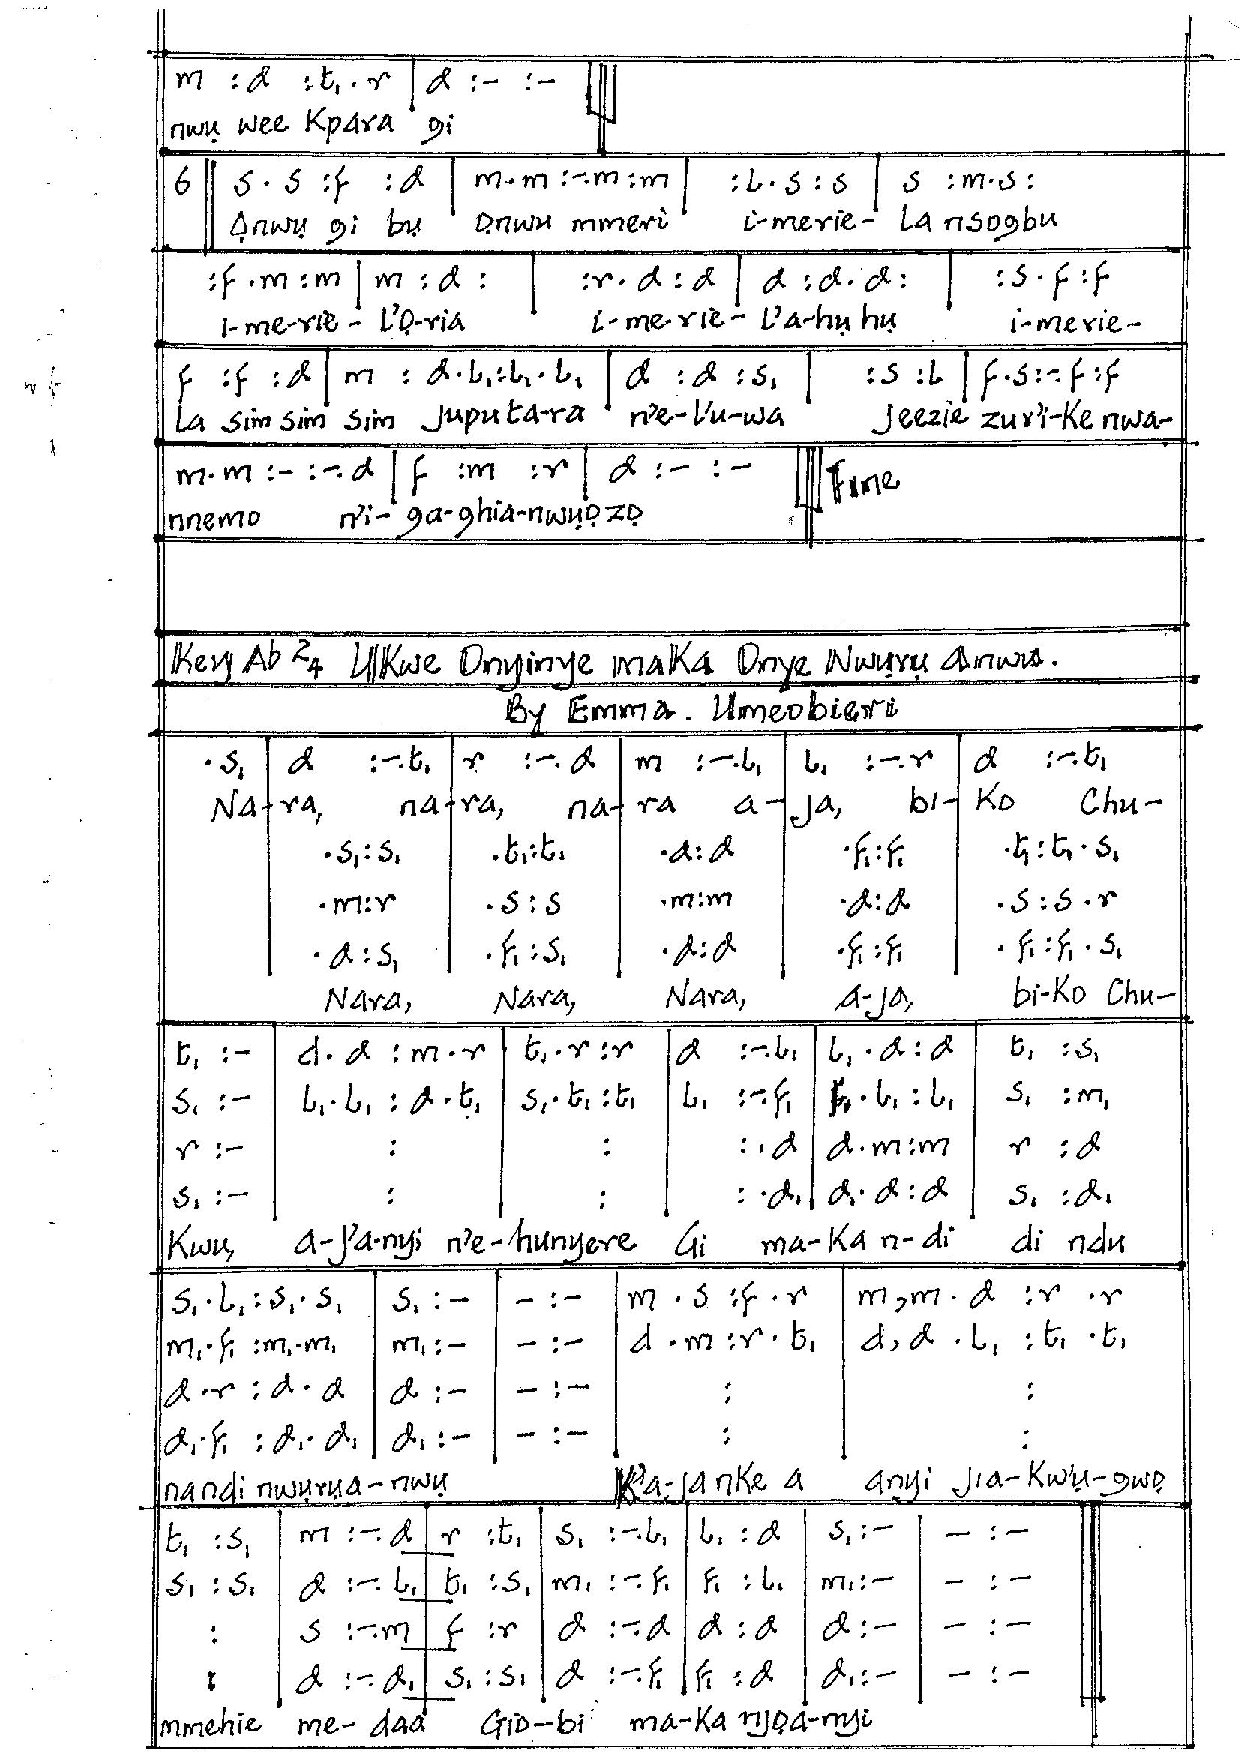 m :d :t₁.r | d :- :-
nwụ wee Kpara gi
6 || s.s :f :d | m.m :-.m :m | :l.s :s | s :m.s :
Ọnwụ gi bụ Ọnwu mmeri i-merie- La nsogbu
:f.m :m | m :d : | :r.d :d | d :d.d : | :s.f :f
i-me-rie- L'Ọ-ria i-me-rie- L'a-hụ hụ i-merie-
f :f :d | m : d.l₁:l₁.l₁ | d :d :s₁ | :s :l | f.s :-.f :f
La sim sim sim Juputa-ra n'e-lu-wa Jeezie zur'i-Ke nwa-
m.m :- :-.d | f :m :r | d :- :- || Fine
nnemo n'i- ga-ghia-nwụọzọ
Key Ab 2/4 UKwe Onyinye maKa Onye Nwụrụ Anwu.
By Emma. Umeobieri
.s₁ | d :-.t₁ | r :-.d | m :-.l₁ | l₁ :-.r | d :-.t₁
Na-ra, na-ra, na-ra a-Ja, bi-Ko Chu-
.s₁:s₁ | .t₁:t₁ | .d:d | .f₁:f₁ | .t₁:t₁.s₁
.m:r | .s:s | .m:m | .d:d | .s:s.r
.d:s₁ | .f₁:s₁ | .d:d | .f₁:f₁ | .f₁:f₁.s₁
Nara, Nara, Nara, a-Ja, bi-Ko Chu-
t₁ :- | d.d :m.r | t₁.r :r | d :-.l₁ | l₁.d :d | t₁ :s₁
s₁ :- | l₁.l₁ :d.t₁ | s₁.t₁ :t₁ | l₁ :-.f₁ | f₁.l₁ :l₁ | s₁ :m₁
r :- | : | : | :.d | d.m:m | r :d
s₁ :- | : | : | :.d₁ | d₁.d :d | s₁ :d₁
Kwu, a-J'a-nyi n'e-hunyere Gi ma-Ka n-di di ndu
s₁.l₁:s₁.s₁ | s₁ :- | - :- | m.s :f.r | m,m.d :r .r
m₁.f₁ :m₁.m₁ | m₁ :- | - :- | d.m :r.t₁ | d,d .l₁ :t₁ .t₁
d.r :d.d | d :- | - :- | : | :
d₁.f₁ :d₁.d₁ | d₁ :- | - :- | : | :
nandi nwụrụa-nwụ K'a-Ja nKe a anyi Jia-Kwụ-gwọ
t₁ :s₁ | m :-.d | r :t₁ | s₁ :-.l₁ | l₁ :d | s₁ :- | - :-
s₁ :s₁ | d :-.l₁ | t₁ :s₁ | m₁ :-.f₁ | f₁ :l₁ | m₁ :- | - :-
: | s :-.m | f :r | d :-.d | d :d | d :- | - :-
: | d :-.d₁ | s₁ :s₁ | d :-.f₁ | f₁ :d | d₁ :- | - :-
mmehie me-daa Gio-bi ma-Ka nJọa-nyi